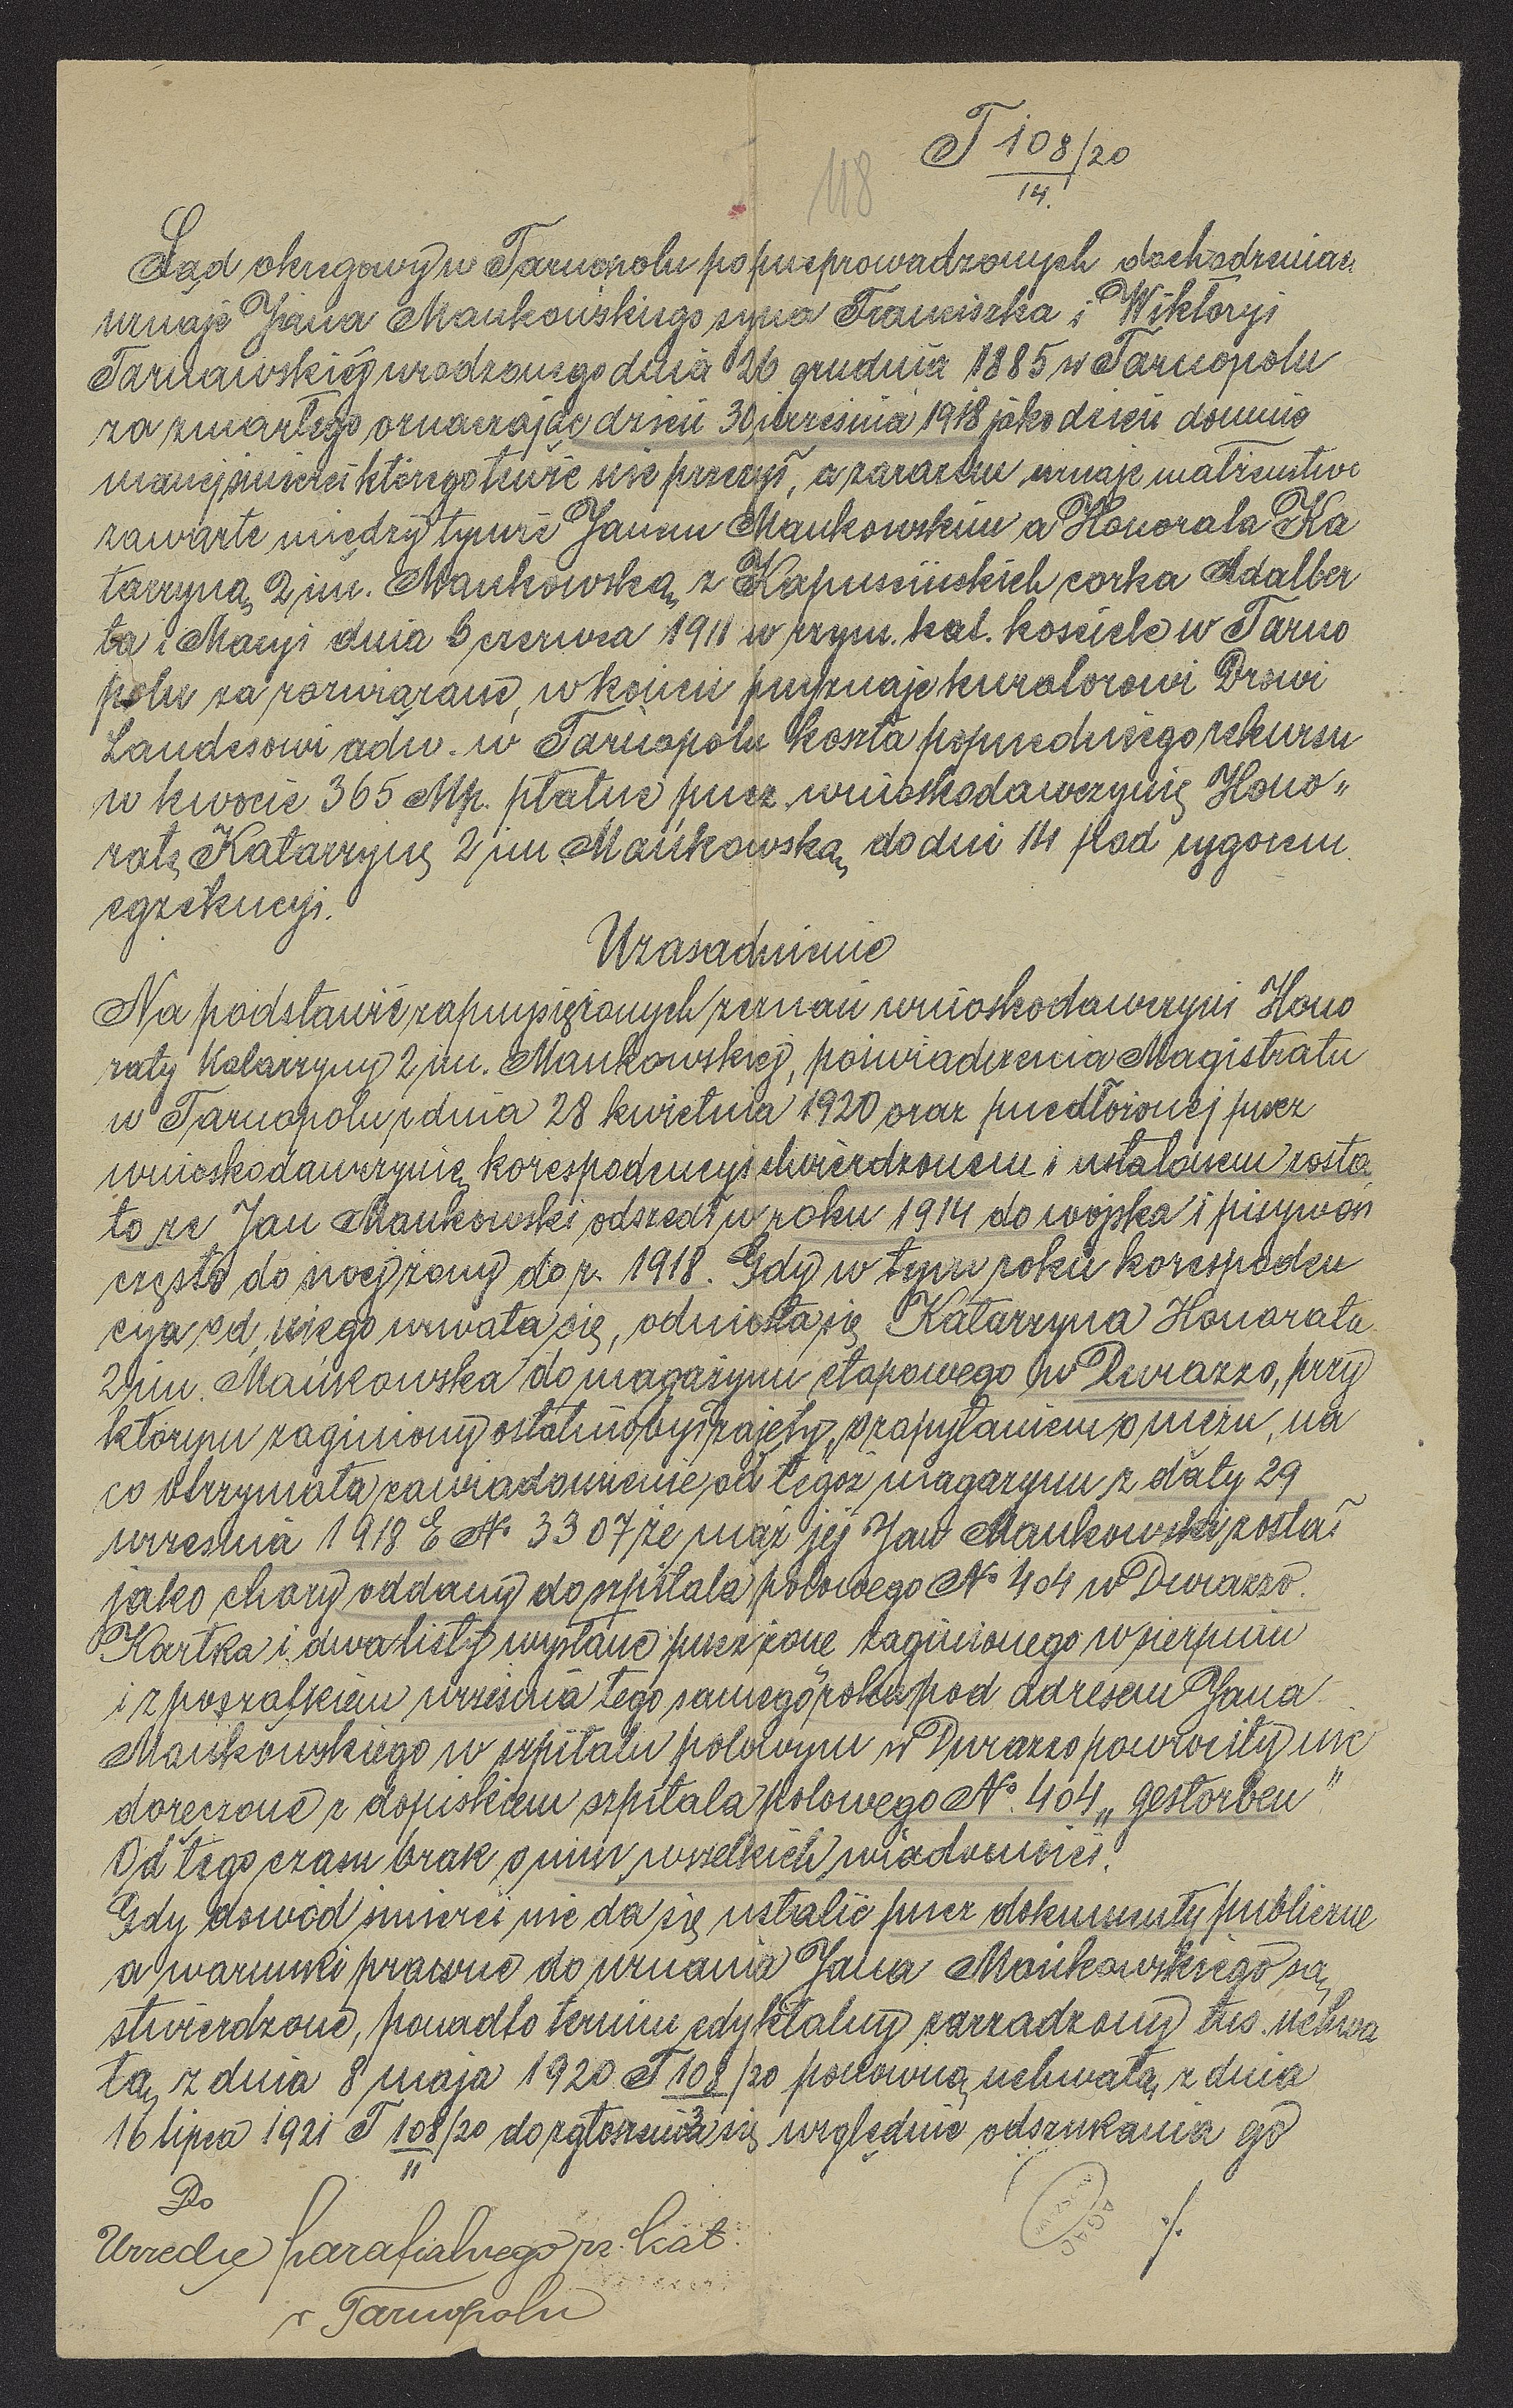 T 108/20
14.
118
Sąd okręgowy w Tarnopolu po przeprowadzonych dochodzeniach
uznaje Jana Mańkowskiego syna Franciszka i Wiktoryi
Tarnawskiej urodzonego dnia 26 grudnia 1885 w Tarnopolu
za zmarłego oznaczając dzień 30 września 1918 jako dzień domnie
manej śmierci którego tenże nie przeżył, a zarazem uznaje małżeństwo
zawarte między tymże Janem Mańkowskim a Honorata Ka
tarzyną 2 im. Mańkowską z Kapuscińskich corka Adalber
ta i Maryi dnia 6 czerwca 1911 w rzym. kat. kosciele w Tarno
polu za rozwiązane, w końcu przyznaje kuratorowi Drowi
Landesowi adw. w Tarnopolu koszta poprzedniego rekursu
w kwocie 365 Mp. płatne przez wnioskodawczynię Hono"
ratę Katarzynę 2 im Mańkowską do dni 14 pod rygorem
egzekucyi.
Uzasadnienie
Na podstawie zaprzysiężonych zeznań wnioskodawczyni Hono
raty Katarzyny 2 im. Mańkowskiej, poświadczenia Magistratu
w Tarnopolu z dnia 28 kwietnia 1920 oraz przedłożonej przez
wnioskodawczynię korespodencyi stwierdzonem i ustalonem zosta
ło ze Jan Mańkowski odszedł w roku 1914 do wojska i pisywał
często do swej żony do r. 1918. Gdy w tym roku korespoden
cya od niego urwała się, odniosła się Katarzyna Honorata
2 im. Mańkowska do magazynu etapowego w Durazzo, przy
którym zaginiony ostatnio był zajęty, z zapytaniem o męzu, na
co otrzymała zawiadomienie od tegoż magazynu z daty 29
września 1918 E No 3307 że mąż jej Jan Mańkowski został
jako chory oddany do szpitala polowego No 404 w Durazzo.
Kartka i dwa listy wysłane przez żonę zaginionego w sierpniu
i z początkiem września tego samego roku pod adresem Jana
Mańkowskiego w szpitalu polowym w Durazzo powrociły nie
doręczone z dopiskiem szpitala polowego No. 404 „gestorben"
Od tego czasu brak o nim wszelkich wiadomości.
Gdy dowód śmierci nie da się ustalić przez dokumenty publiczne
a warunki prawne do uznania Jana Mańkowskiego są
stwierdzone, ponadto termin edyktalny zarządzony tus. uchwa
łą z dnia 8 maja 1920 T 108/20 ponowną uchwałą z dnia
3
16 lipca 1921 T 108/20 do zgłoszenia się względnie odszukania go
11
Do
Urzędu parafialnego rz. kat.
w Tarnopolu
AGAD
./.